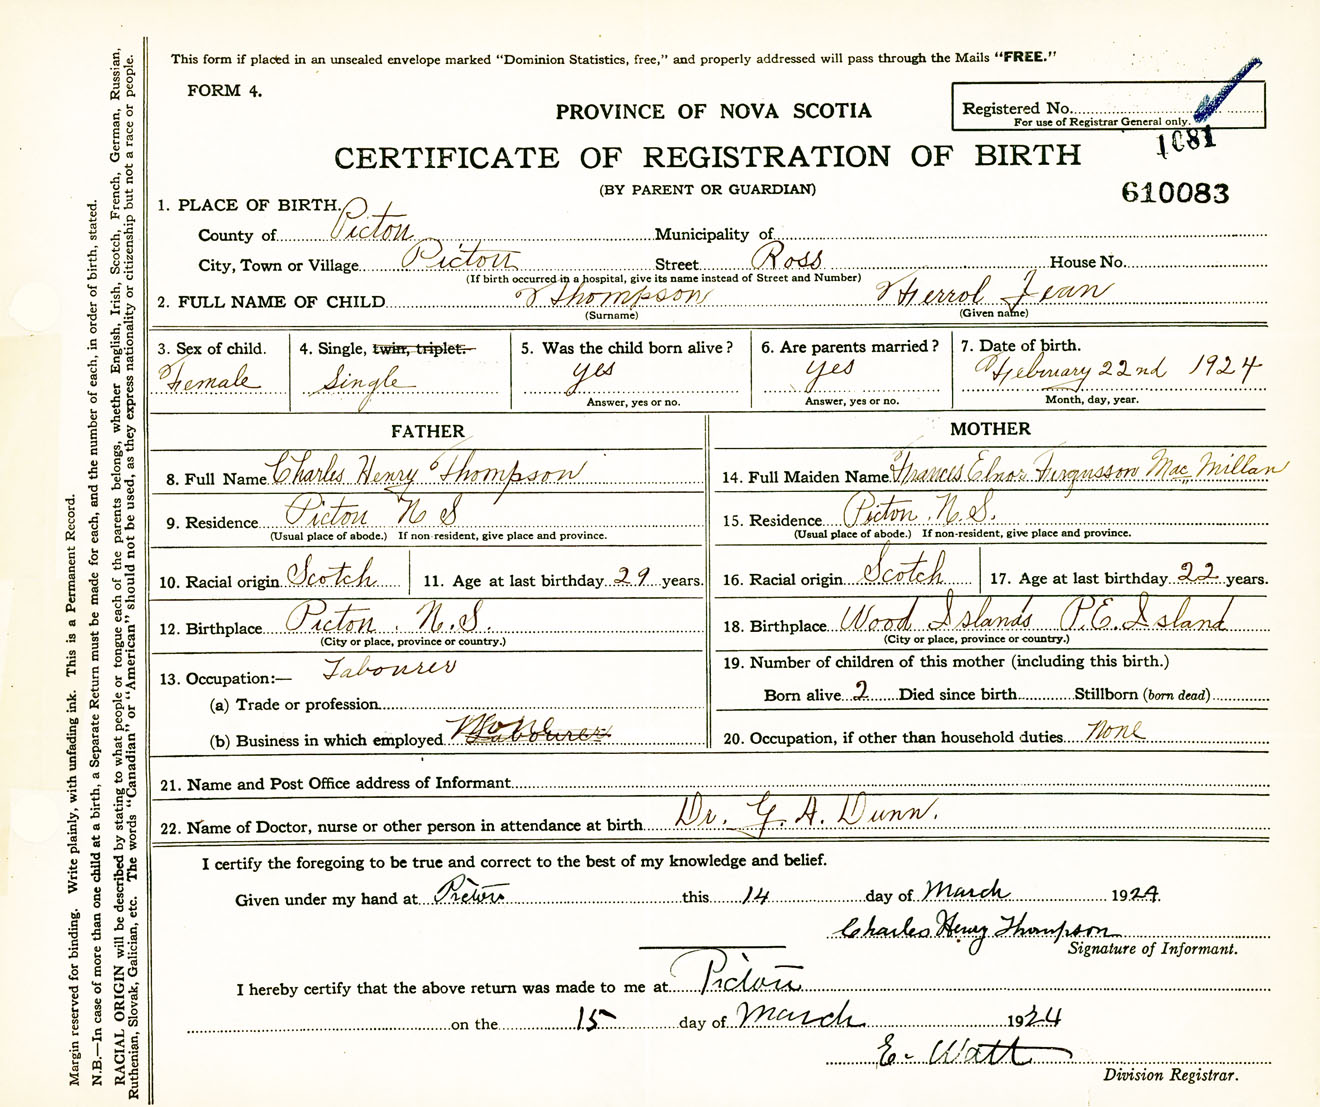 This form if placed in an unsealed envelope marked "Dominion Statistics, free," and properly addressed will pass through the Mails "FREE."
FORM 4.
PROVINCE OF NOVA SCOTIA
Registered No.
For use of Registrar General only.
1081
CERTIFICATE OF REGISTRATION OF BIRTH
(BY PARENT OR GUARDIAN)
610083
1. PLACE OF BIRTH.
County of Picton Municipality of
City, Town or Village Picton Street Ross House No.
(If birth occurred in a hospital, give its name instead of Street and Number)
2. FULL NAME OF CHILD Thompson Ferrol Jean
(Surname) (Given name)
3. Sex of child. 4. Single, twin, triplet. 5. Was the child born alive? 6. Are parents married? 7. Date of birth.
Female Single yes yes February 22nd 1924
Answer, yes or no. Answer, yes or no. Month, day, year.
FATHER MOTHER
8. Full Name Charles Henry Thompson 14. Full Maiden Name Frances Elnor Fergusson MacMillan
9. Residence Picton N S 15. Residence Picton N.S.
(Usual place of abode.) If non-resident, give place and province. (Usual place of abode.) If non-resident, give place and province.
10. Racial origin Scotch 11. Age at last birthday 29 years. 16. Racial origin Scotch 17. Age at last birthday 22 years.
12. Birthplace Picton. N.S. 18. Birthplace Wood Islands P.E. Island
(City or place, province or country.) (City or place, province or country.)
13. Occupation:— Labourer 19. Number of children of this mother (including this birth.)
(a) Trade or profession Born alive 2 Died since birth Stillborn (born dead)
(b) Business in which employed None Labourer 20. Occupation, if other than household duties None
21. Name and Post Office address of Informant
22. Name of Doctor, nurse or other person in attendance at birth Dr. G. A. Dunn.
I certify the foregoing to be true and correct to the best of my knowledge and belief.
Given under my hand at Picton this 14 day of March 1924
Charles Henry Thompson
Signature of Informant.
I hereby certify that the above return was made to me at Picton
on the 15 day of March 1924
E. Watt
Division Registrar.
Margin reserved for binding. Write plainly, with unfading ink. This is a Permanent Record.
N.B.—In case of more than one child at a birth, a Separate Return must be made for each, and the number of each, in order of birth, stated.
RACIAL ORIGIN will be described by stating to what people or tongue each of the parents belongs, whether English, Irish, Scotch, French, German, Russian,
Ruthenian, Slovak, Galician, etc. The words "Canadian" or "American" should not be used, as they express nationality or citizenship but not a race or people.